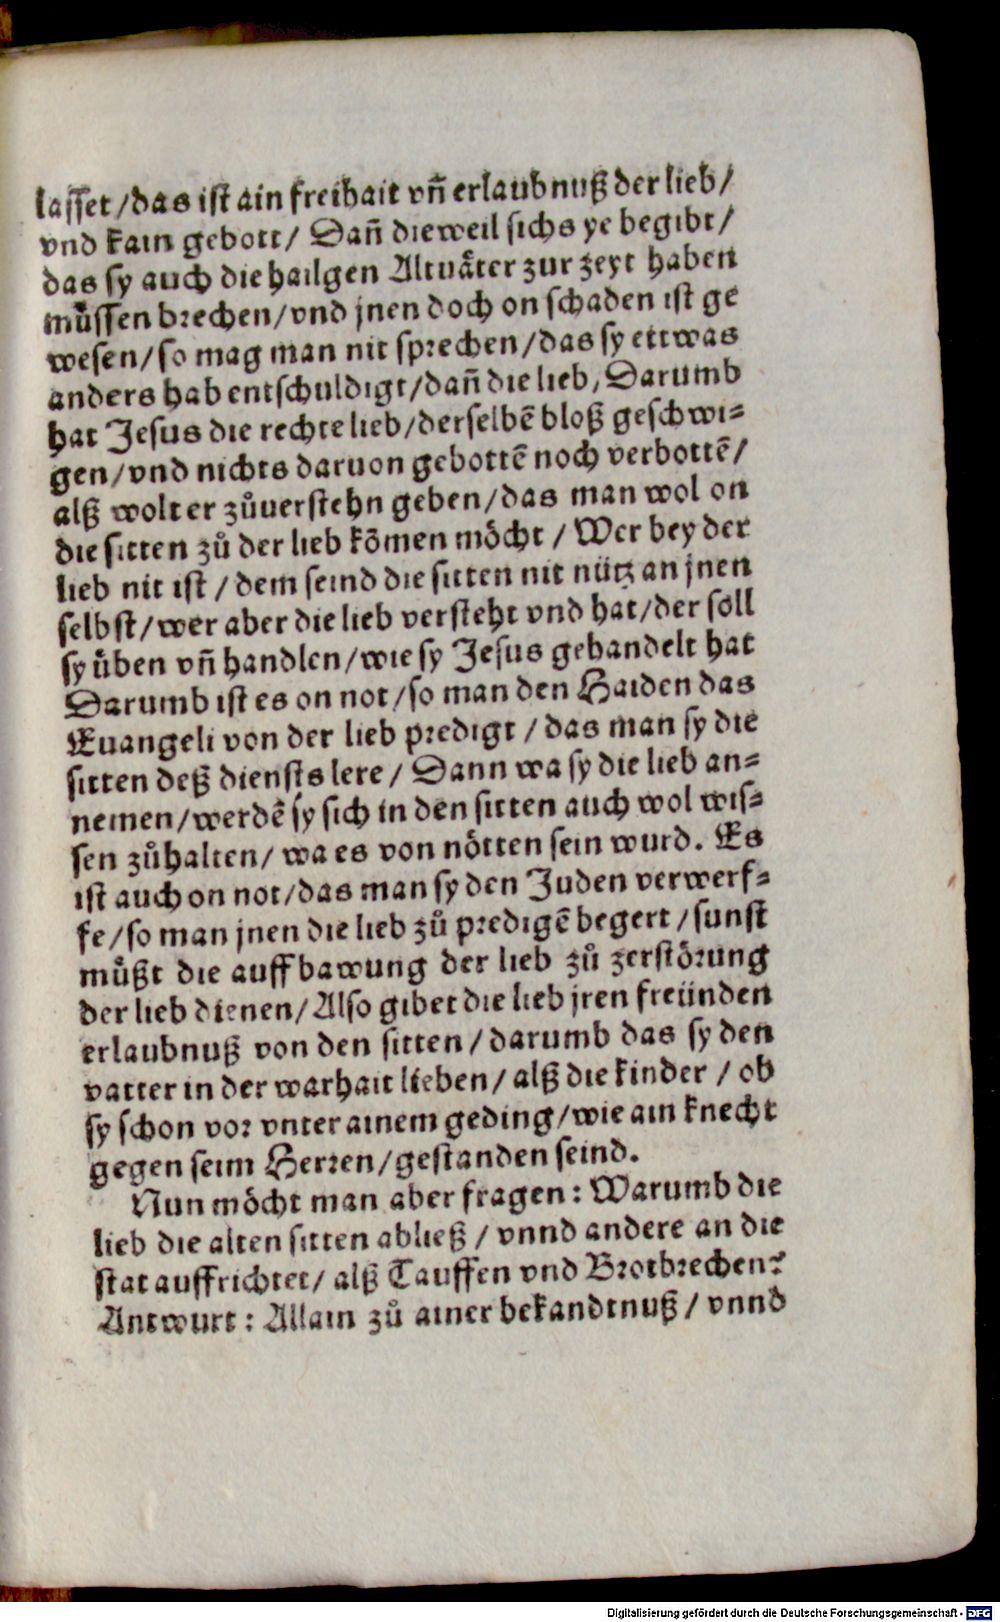 lasset / das ist ain freihait vn̄ erlaubnuß der lieb /
vnd kain gebott / Dan̄ dieweil sichs ye begibt /
das sy auch die hailgen Altuåter zur zeyt haben
můssen brechen / vnd jnen doch on schaden ist ge
wesen / so mag man nit sprechen / das sy ettwas
anders hab entschuldigt / dan̄ die lieb, Darumb
hat Jesus die rechte lieb / derselbē bloß geschwi⸗
gen / vnd nichts daruon gebottē noch verbottē /
alß wolt er zůuerstehn geben / das man wol on
die sitten zů der lieb kōmen möcht / Wer bey der
lieb nit ist / dem seind die sitten nit nütz an jnen
selbst / wer aber die lieb versteht vnd hat / der soll
sy üben vn̄ handlen / wie sy Jesus gehandelt hat
Darumb ist es on not / so man den Haiden das
Euangeli von der lieb predigt / das man sy die
sitten deß diensts lere / Dann wa sy die lieb an⸗
nemen / werdē sy sich in den sitten auch wol wis⸗
sen zůhalten / wa es von nötten sein wurd. Es
ist auch on not / das man sy den Juden verwerf⸗
fe / so man jnen die lieb zů predigē begert / sunst
můßt die auffbawung der lieb zů zerstörung
der lieb dienen / Also gibet die lieb jren freünden
erlaubnuß von den sitten / darumb das sy den
vatter in der warhait lieben / alß die kinder / ob
sy schon vor vnter ainem geding / wie ain knecht
gegen seim Herren / gestanden seind.
Nun möcht man aber fragen : Warumb die
lieb die alten sitten abließ / vnnd andere an die
stat auffrichtet / alß Tauffen vnd Brotbrechen?
Antwurt : Allain zů ainer bekandtnuß / vnnd
Digitalisierung gefördert durch die Deutsche Forschungsgemeinschaft - DFG